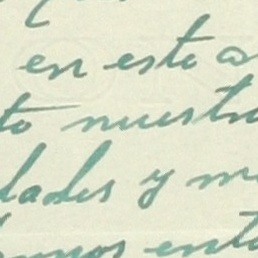 en este a
to nuestro
dades y m
unos ent